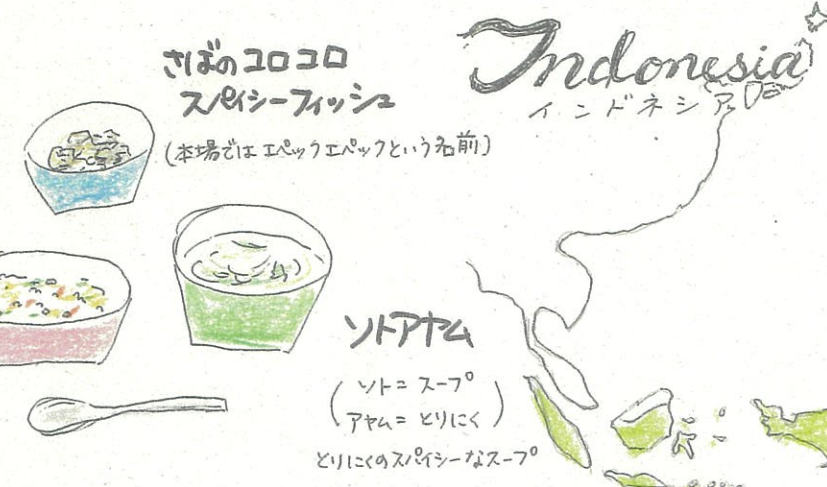 さばのコロコロ
スパイシーフィッシュ
(本場では エペックエペックという名前)
Indonesia
インドネシア
ソトアヤム
(ソト= スープ
アヤム= とりにく)
とりにくのスパイシーなスープ